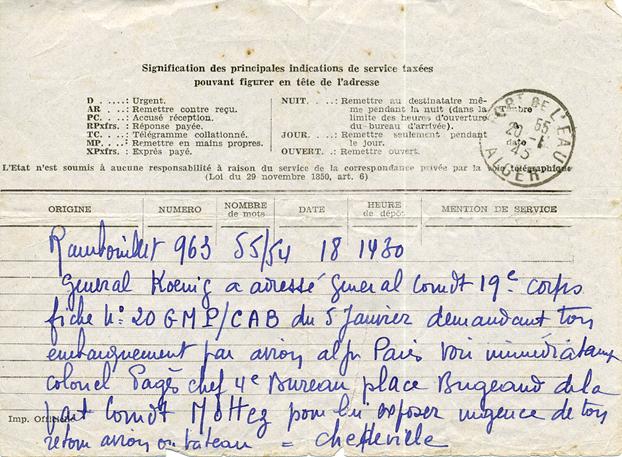 Signification des principales indications de service taxées
pouvant figurer en tête de l'adresse
D ....: Urgent.
AR . . .: Remettre contre reçu.
PC. . . .: Accusé réception.
RPxfrs. : Réponse payée.
TC. . . .: Télégramme collationné.
MP. . . .: Remettre en mains propres.
XPxfrs.: Exprès payé.
NUIT. . . .: Remettre au destinataire mê-
me pendant la nuit (dans la
limite des heures d'ouverture
du bureau d'arrivée).
JOUR. . . .: Remettre seulement pendant
le jour.
OUVERT. : Remettre ouvert.
Timbre
date
FORT DE L'EAU
20 -1
45
ALGER
L'Etat n'est soumis à aucune responsabilité à raison du service de la correspondance privée par la voie télégraphique
(Loi du 29 novembre 1850, art. 6)
ORIGINE NUMERO NOMBRE de mots DATE HEURE de dépôt MENTION DE SERVICE
Rambouillet 963 55/54 18 1430
General Koenig a adressé General Comdt 19e corps
fiche No 20 GMP/CAB du 5 Janvier demandant ton
embarquement par avion Paris Voir immédiatement
colonel Pagès chef 4e Bureau place Bugeaud de la
part Comdt pour lui exposer urgence de ton
Imp. Officielle
retour avion ou bateau =